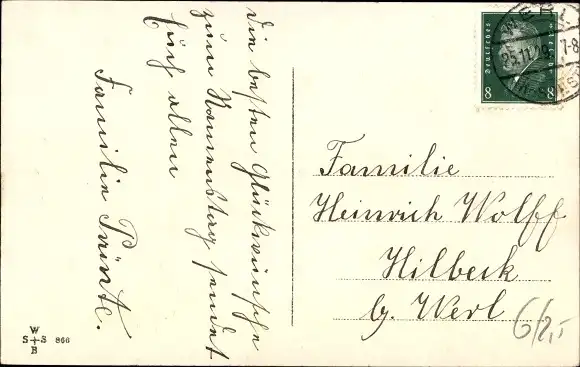 die besten Glückwünsche
zum Namenstag sendet
Euch allen
Familie
Familie
Heinrich Wolff
Hilbeck
b. Werl
WERL
25.11.29 7-8
Deutsches Reich
8 8
W
S+S 866
B
6/2,-